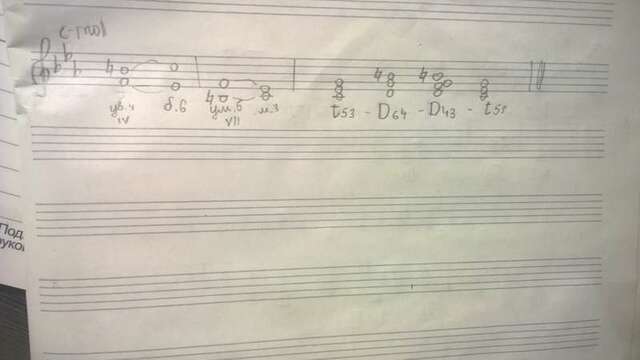 c-moll
ув.4 б.6 ум.5 м.3 t53 - D64 - D43 - t53
IV VII
Под